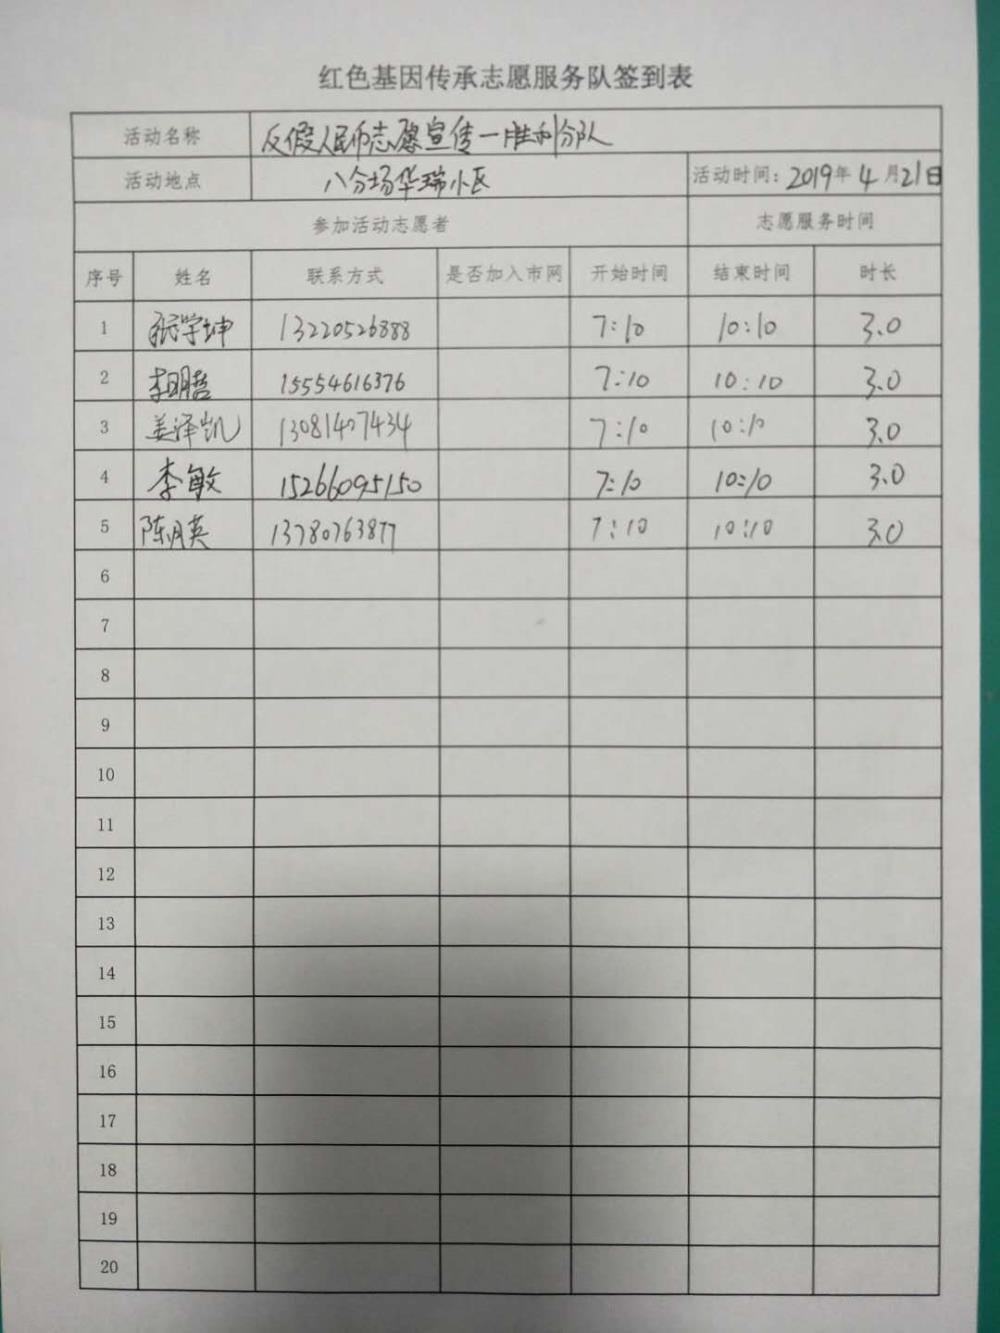 红色基因传承志愿服务队签到表
活动名称 反假人民币志愿宣传一胜利分队
活动地点 八分场华瑞小区 活动时间：2019年4月21日
参加活动志愿者 志愿服务时间
序号 姓名 联系方式 是否加入市网 开始时间 结束时间 时长
1 张学坤 13220526888 7:10 10:10 3.0
2 李明哲 15554616376 7:10 10:10 3.0
3 姜泽凯 13081407434 7:10 10:10 3.0
4 李敏 15266095150 7:10 10:10 3.0
5 陈月英 13780763877 7:10 10:10 3.0
6
7
8
9
10
11
12
13
14
15
16
17
18
19
20